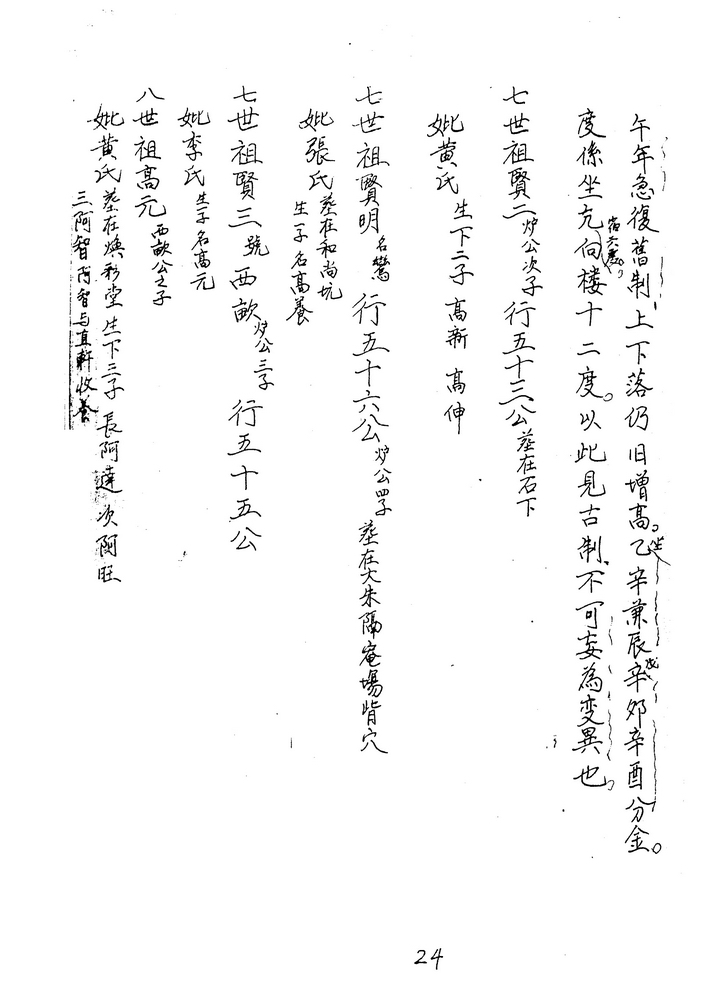 午年急復舊制上下落仍旧增高。乙坐辛兼辰戌辛夘辛酉分金。
度係坐亢宿六度向楼十二度。以此見古制不可妄為变異也。
七世祖賢二炉公次子行五十三公墓在石下
妣黄氏生下二子高新高伸
七世祖賢明名鸞行五十六公炉公四子墓在大朱隔庵場背穴
妣張氏墓在和尚坑生一子名高養
七世祖賢三號西畝炉公三子行五十五公
妣李氏生子名高元
八世祖高元西畝公之子
妣黄氏墓在煥彩堂生下三子長阿達次阿旺
三阿智阿智与直軒收養
24